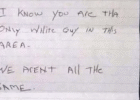 I KNOW YOU ARE THE
ONLY WHITE GUY IN THIS
AREA.
WE ARENT ALL THE
SAME.